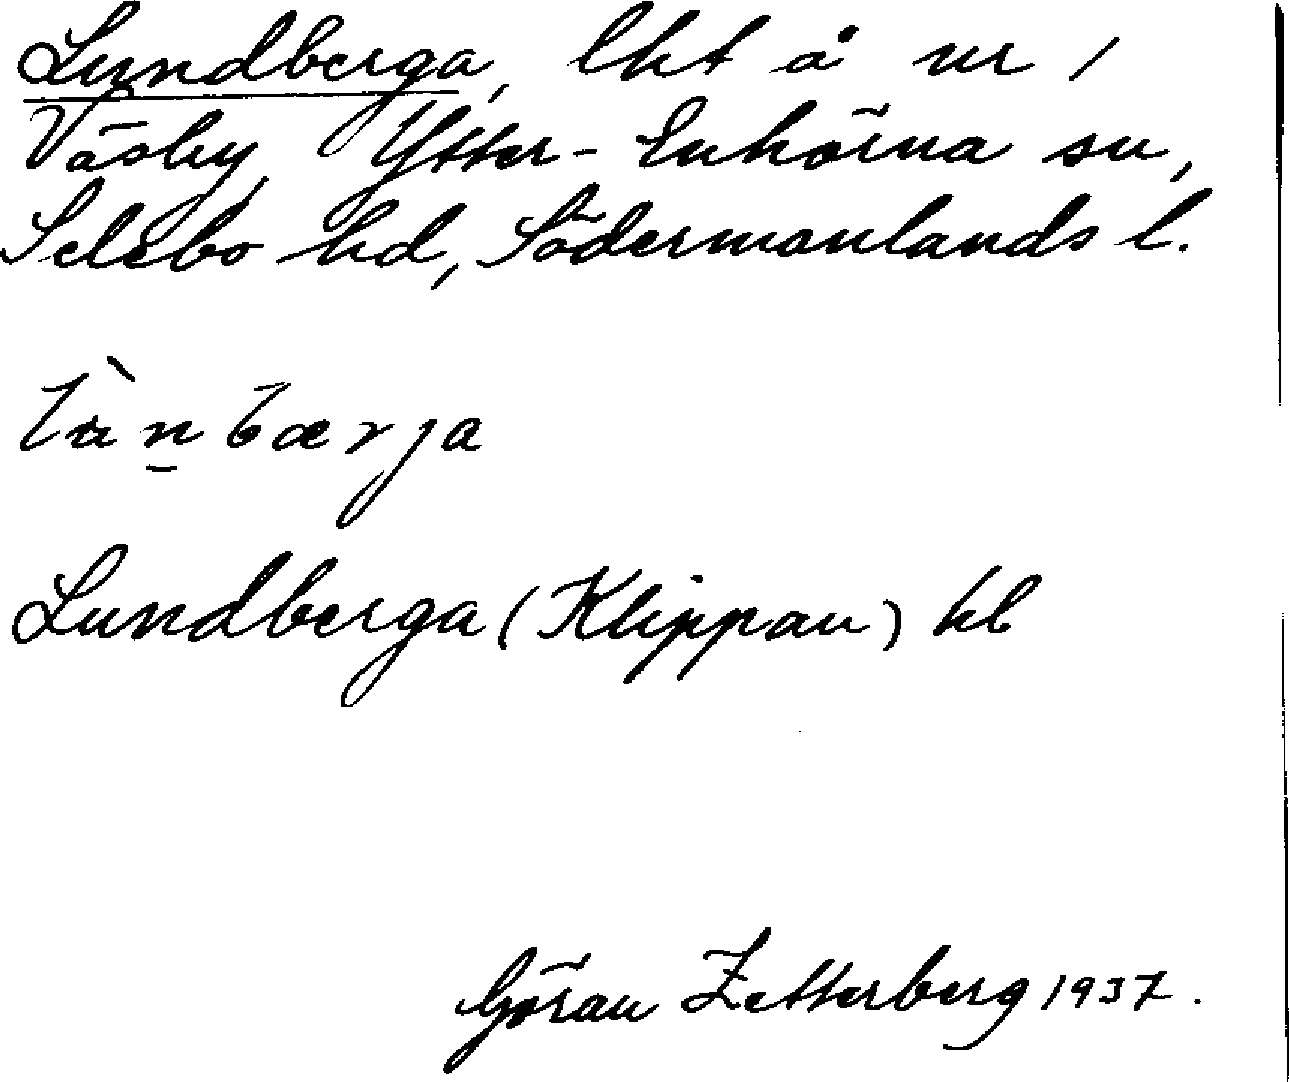 Lundberga, lht å nr 1
Väsby, Ytter-Enhörna sn,
Selebo hd, Södermanlands l.
lùn̲bærja
Lundberga (Klippan) hl
Göran Zetterberg 1937.